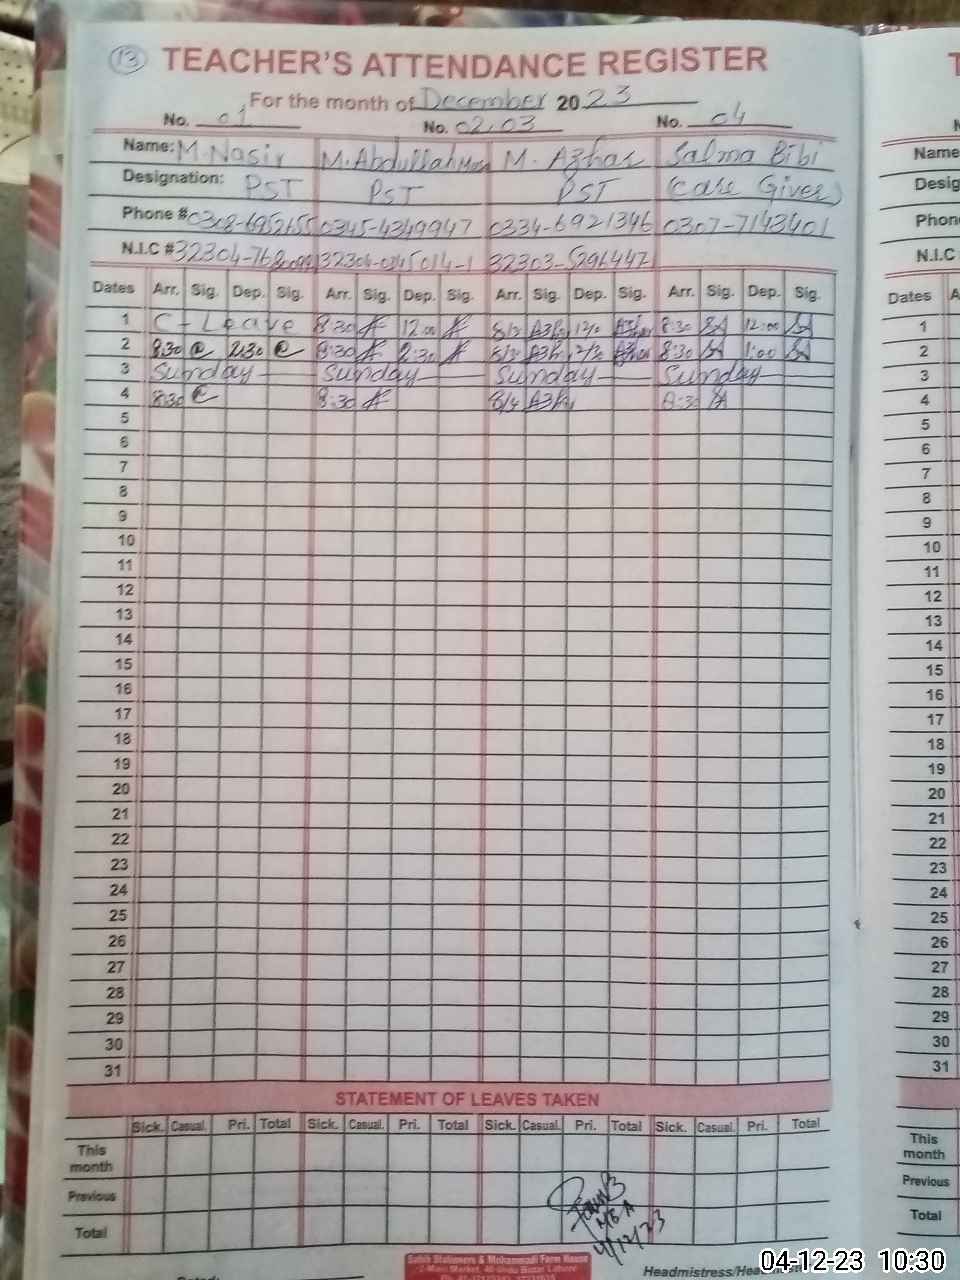 13 TEACHER'S ATTENDANCE REGISTER
For the month of December 20 23
No. 01 No. 02,03 No. 04
Name: M. Nasir M. Abdullah M. Azhar Salma Bibi
Designation: PST PST PST (Care Giver)
Phone # 0308-6952655 0345-4349947 0334-6921346 0307-7143401
N.I.C # 32303-5296447
Dates Arr. Sig. Dep. Sig. Arr. Sig. Dep. Sig. Arr. Sig. Dep. Sig. Arr. Sig. Dep. Sig.
1 C-Leave 8:30 12:00 8:30 12:00
2 8:30 2:30 8:30 2:30 8:30 1:00
3 Sunday Sunday Sunday Sunday
4 8:30 8:30 8:30
5
6
7
8
9
10
11
12
13
14
15
16
17
18
19
20
21
22
23
24
25
26
27
28
29
30
31
STATEMENT OF LEAVES TAKEN
Sick. Casual. Pri. Total Sick. Casual. Pri. Total Sick. Casual. Pri. Total Sick. Casual. Pri. Total
This month
Previous
Total
MEA
4/12/23
Headmistress/
Name
Desig
Phon
N.I.C
Dates
1
2
3
4
5
6
7
8
9
10
11
12
13
14
15
16
17
18
19
20
21
22
23
24
25
26
27
28
29
30
31
This month
Previous
Total
04-12-23 10:30